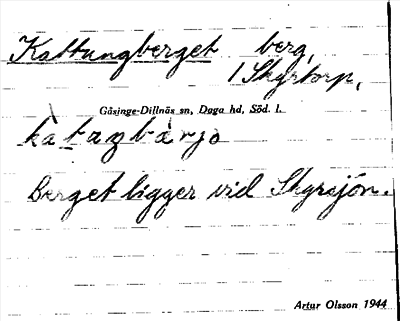 Kattungberget berg,
/ Skyrtorp,
Gåsinge-Dillnäs sn, Daga hd, Söd. l.
Berget ligger vid Skyrsjön.
Artur Olsson 1944